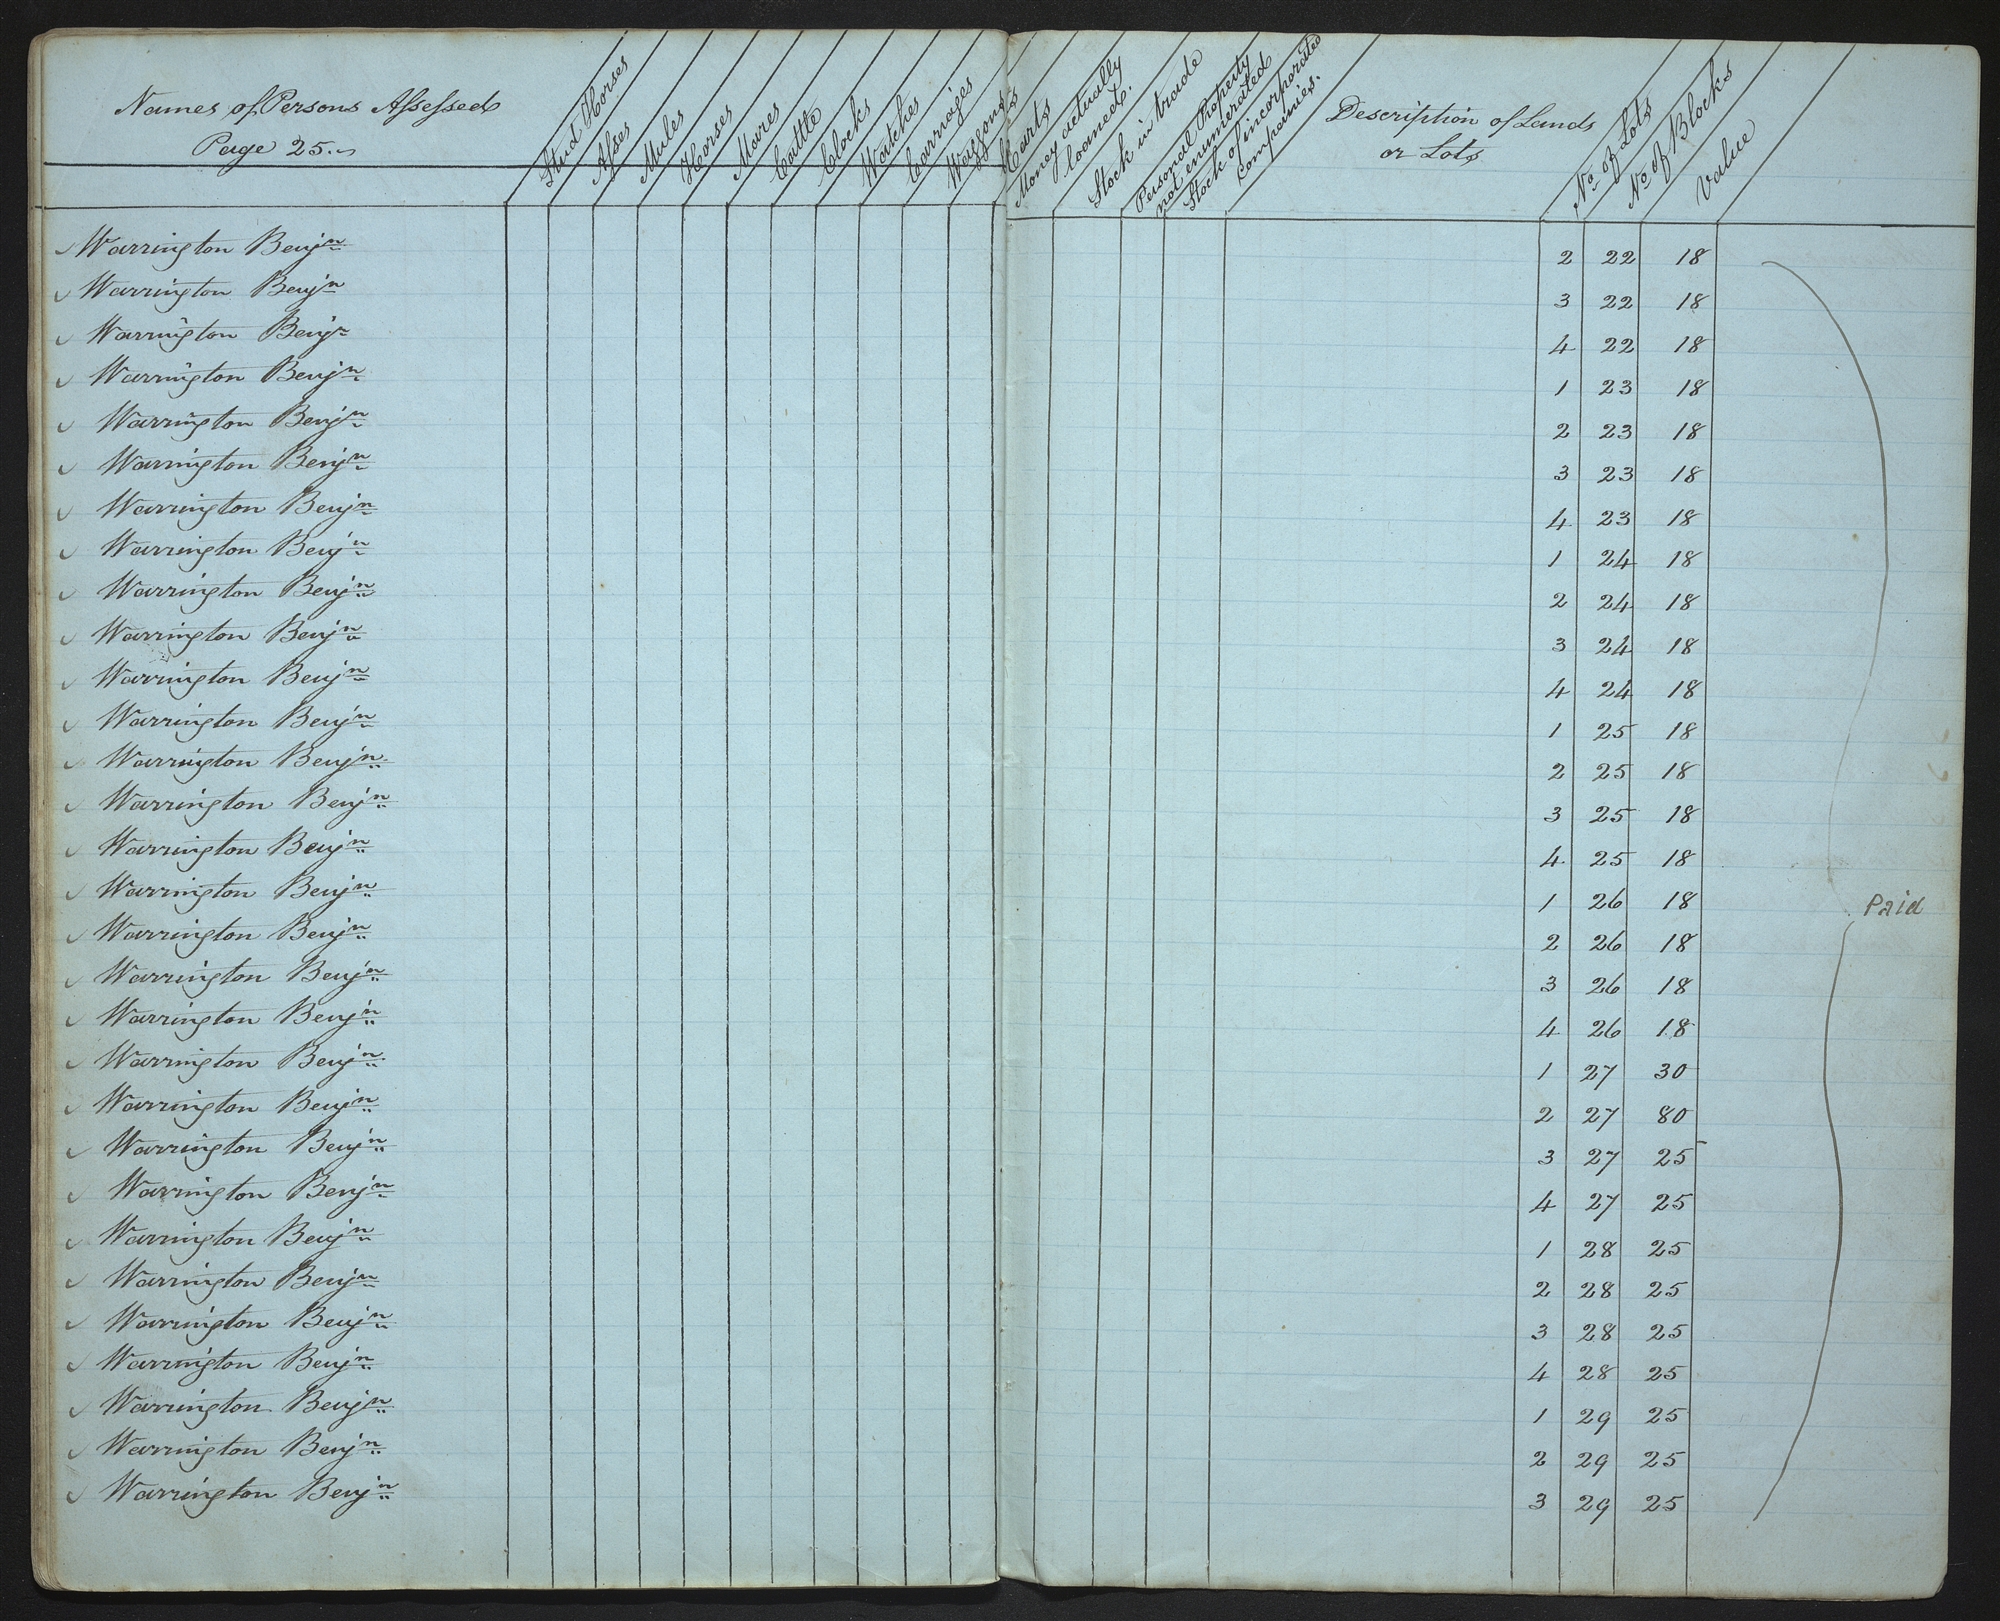 Names of Persons Assessed
Page 25.
Stud Horses
Asses
Mules
Horses
Mares
Cattle
Clocks
Watches
Carriages
Waggons
Carts
Money actually loaned.
Stock in trade
Personal Property not enumerated
Stock of incorporated companies.
Description of Lands or Lots
No of Lots
No of Blocks
Value
Warrington Benjn 2 22 18
Warrington Benjn 3 22 18
Warrington Benjn 4 22 18
Warrington Benjn 1 23 18
Warrington Benjn 2 23 18
Warrington Benjn 3 23 18
Warrington Benjn 4 23 18
Warrington Benjn 1 24 18
Warrington Benjn 2 24 18
Warrington Benjn 3 24 18
Warrington Benjn 4 24 18
Warrington Benjn 1 25 18
Warrington Benjn 2 25 18
Warrington Benjn 3 25 18
Warrington Benjn 4 25 18
Warrington Benjn 1 26 18
Paid
Warrington Benjn 2 26 18
Warrington Benjn 3 26 18
Warrington Benjn 4 26 18
Warrington Benjn 1 27 30
Warrington Benjn 2 27 80
Warrington Benjn 3 27 25
Warrington Benjn 4 27 25
Warrington Benjn 1 28 25
Warrington Benjn 2 28 25
Warrington Benjn 3 28 25
Warrington Benjn 4 28 25
Warrington Benjn 1 29 25
Warrington Benjn 2 29 25
Warrington Benjn 3 29 25